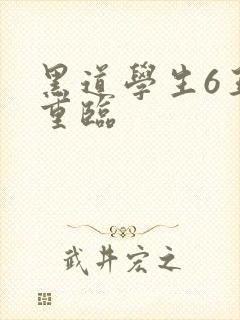 黑道學生6
重臨
武井宏之